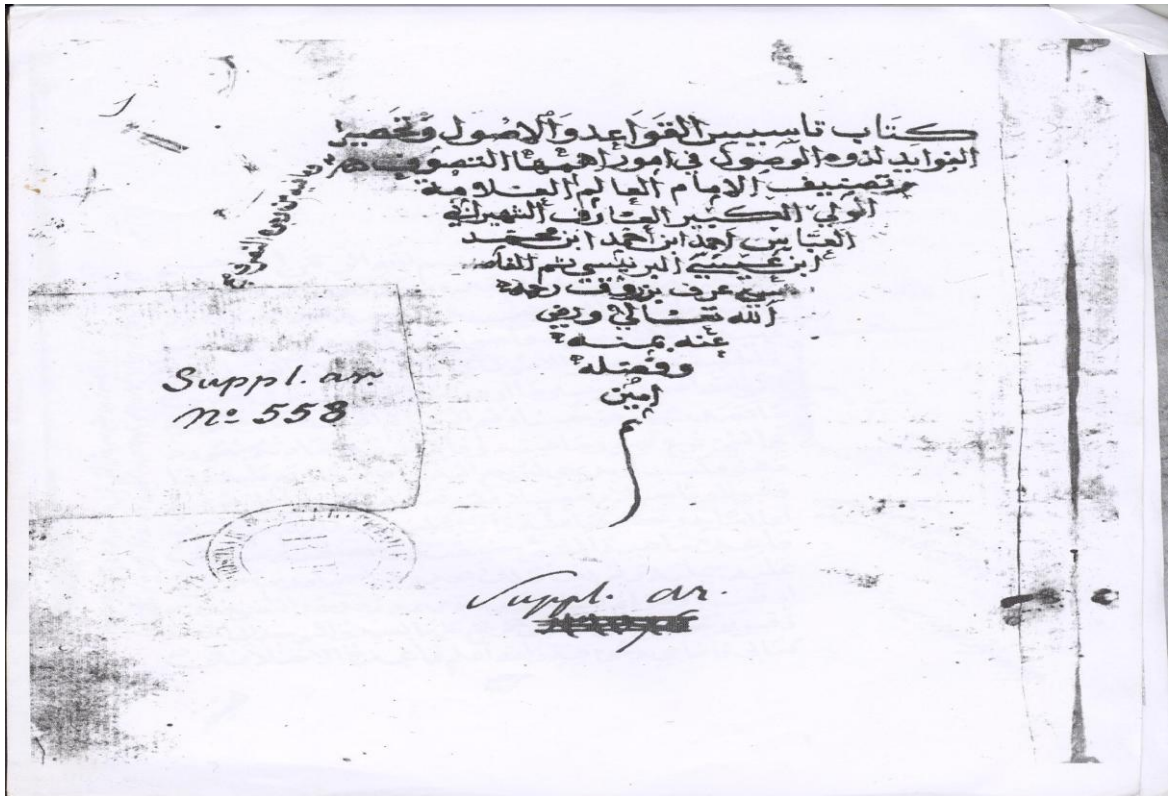 كتاب تاسيس القواعد والاصول وتحصيل
الفوايد لذوي الوصول في امور اهمها التصوف
تصنيف الامام العالم العلامة
الولي الكبير العارف الشهير ابي
العباس احمد ابن احمد ابن محمد
ابن عيسى البرنسي ثم الفا
سي عرف بزروق رحمه
الله تعالى ورضي
عنه بمنه
وفضله
امين
Suppl. ar.
nº 558
Suppl. ar.